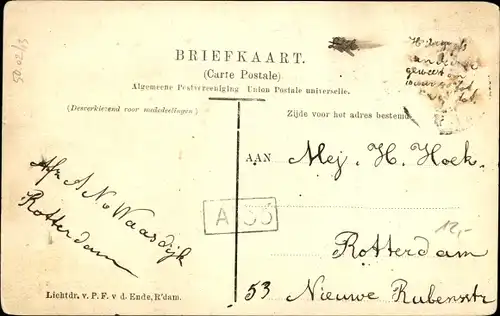 50 02/13
BRIEFKAART.
(Carte Postale)
Algemeene Postvereeniging Union Postale universelle.
(Desverkiezend voor mededeelingen)
Zijde voor het adres bestemd
geweest
Afz. A. N. Waasdijk
Rotterdam
AAN Mej. H. Hoek.
A 35
12,-
Rotterdam
53 Nieuwe Rubensstr
Lichtdr. v. P. F. v. d. Ende, R'dam.